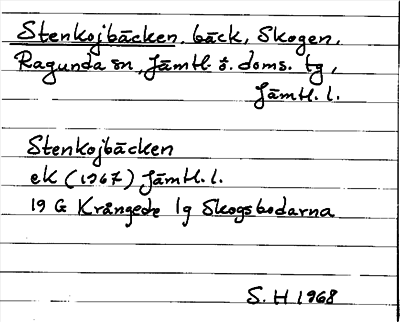 Stenkojbäcken, bäck, Skogen,
Ragunda sn, Jämtl. ö. doms. tg,
Jämtl. l.
Stenkojbäcken
ek (1967) Jämtl. l.
19 G Krångede 1g Skogsbodarna
S. H 1968